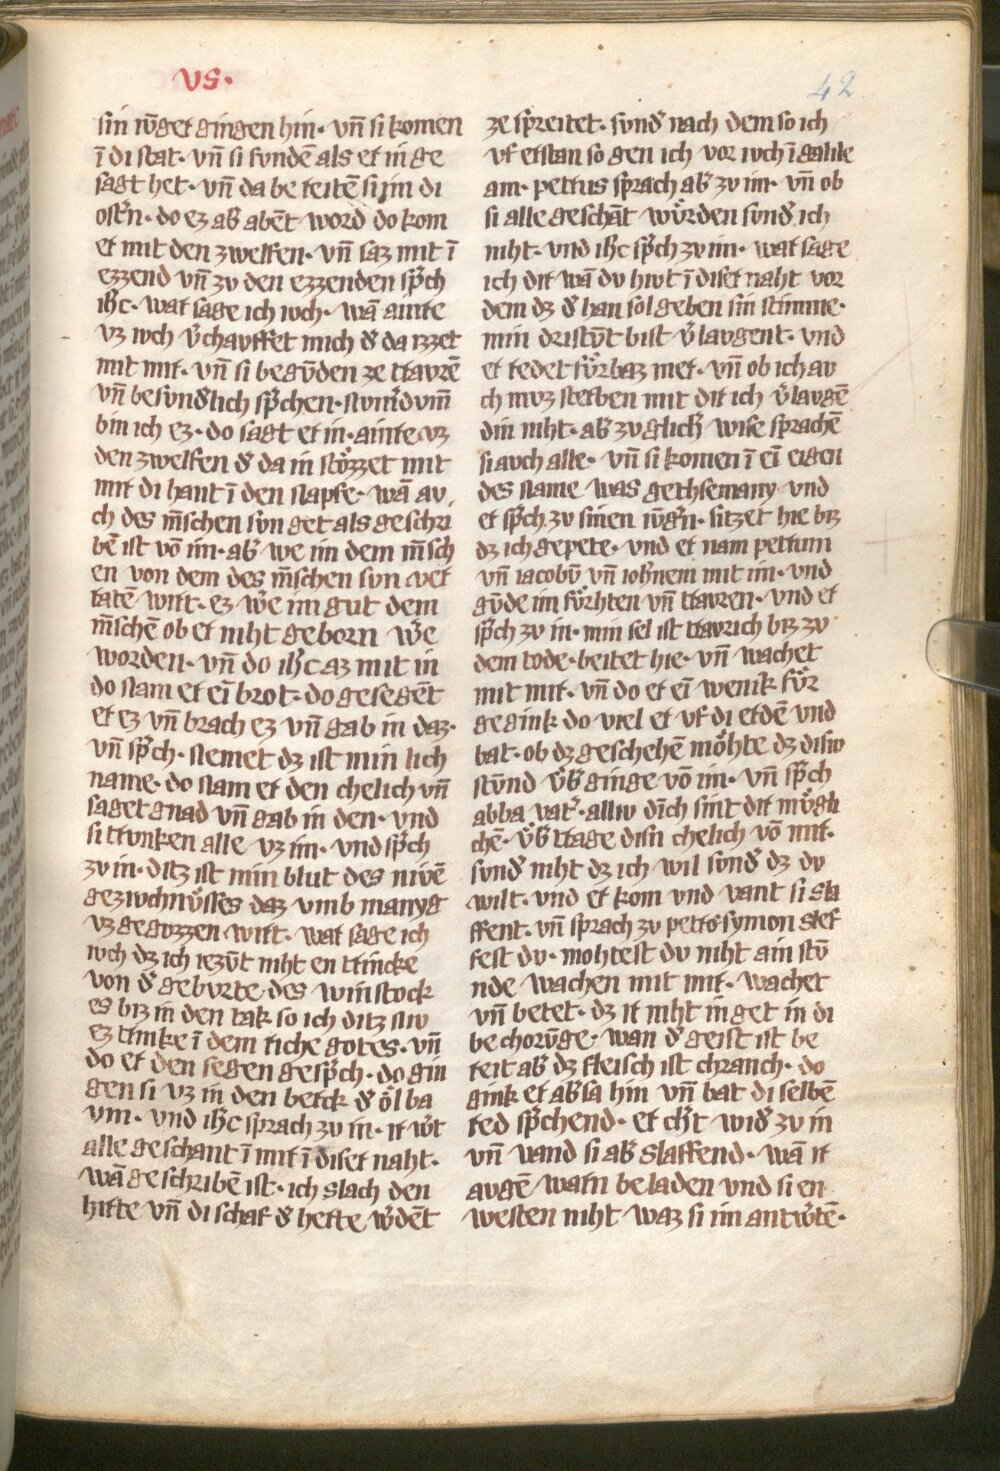 vs.
42
sin iv̄ger gingen hin. vn̄ si komen
ī di stat. vn̄ si fundē als er in ge
sagt het. vn̄ da bereitē si jm di
ostˀn. do ez abˀ abēt word do kom
er mit den zwelfen. vn̄ saz mit ī
ezzend vn̄ zu den ezzenden sp̄ch
ih̄c. war sage ich iuch. wā ainre
vz iuch v̓chauffet mich d̓ da izzet
mit mir. vn̄ si begv̄den ze travrē
vn̄ besund̓lich sp̄chen.
bin ich ez. do sagt er in. ainre vz
den zwelfen d̓ da in stözzet mit
mir di hant ī den napfe. wā au
ch des m̄schen sun get als geschri
bē ist vō im. ab̓ we im dem m̄sch
en von dem des m̄schen sun ver
ratē wirt. ez wˀe im gut dem
m̄schē ob er niht geborn wˀe
worden. vn̄ do ih̄c az mit in
do nam er eī brot. do gesegēt
er ez vn̄ brach ez vn̄ gab in daz.
vn̄ sp̄ch. nemet dz ist min lich
name. do nam er den chelich vn̄
saget gnad vn̄ gab in den. vnd
si trunken alle vz im. vnd sp̄ch
zu in. ditz ist min blut des nivē
geziuchnüsses daz vmb manyg
vz gegozzen wirt. war sage ich
iuch dz ich iezūt niht en trincke
von d̓ geburte des winstock
es biz in den tak so ich ditz niw
ez trinke ī dem riche gotes. vn̄
do er den segen gesp̄ch. do gin
gen si vz in den berck d̓ ölba
vm. vnd ih̄c sprach zu in. ir wˀt
alle geschant ī mir ī diser naht.
wā geschribē ist. ich slach den
hirte vn̄ di schaf d̓ herte w̓dēt
ze spreitet. sund̓ nach dem so ich
vf erstan so gen ich vor iuch ī galile
am. petrus sprach ab̓ zu im. vn̄ ob
si alle geschāt würden sund̓ ich
niht. vnd ih̄c sp̄ch zu im. war sage
ich dir wā du hiut ī diser naht vor
dem dz d̓ han sol geben sin stimme.
min dristūt bist v̓laugent. vnd
er redet fürbaz mer. vn̄ ob ich au
ch muz sterben mit dir ich v̓laugē
din niht. ab̓ zu glich̓ wise sprachē
si auch alle. vn̄ si komen ī eī eigen
des name was gethsemany vnd
er sp̄ch zu sinen iv̄gˀn. sitzet hie biz
dz ich gepete. vnd er nam petrum
vn̄ iacobū vn̄ ioh̄nem mit im. vnd
gūde im fürhten vn̄ travren. vnd er
sp̄ch zu in. min sel ist travrich biz zu
dem tode. beitet hie. vn̄ wachet
mit mir. vn̄ do er eī wenik für
gegink do viel er vf di erdē vnd
bat. ob dz geschehē möhte dz disiu
stūnd v̓b̓ ginge vō im. vn̄ sp̄ch
abba vatˀ. alliu dīch sint dir mügli
chē. v̓b̓ trage disn chelich vō mir.
sund̓ niht dz ich wil sund̓ dz du
wilt. vnd er kom vnd vant si sla
ffent. vn̄ sprach zu petro symon slef
fest du. mohtest du niht ain stū
nde wachen mit mir. wachet
vn̄ betet. dz ir niht in get in di
bechorūge. wan d̓ geist ist be
reit ab̓ dz fleisch ist chranch. do
gink er ab̓ sa hin vn̄ bat di selbē
red sp̄chend. er ch̓t wid̓ zu in
vn̄ vand si ab̓ slaffend. wā ir
augē warn beladen vnd si en
westen niht waz si im antw̓tē.